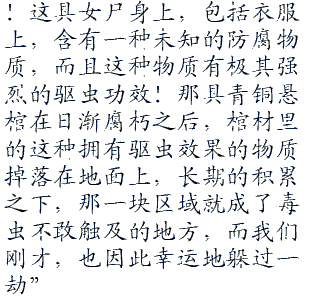 ！这具女尸身上，包括衣服
上，含有一种未知的防腐物
质，而且这种物质有极其强
烈的驱虫功效！那具青铜悬
棺在日渐腐朽之后，棺材里
的这种拥有驱虫效果的物质
掉落在地面上，长期的积累
之下，那一块区域就成了毒
虫不敢触及的地方，而我们
刚才，也因此幸运地躲过一
劫”